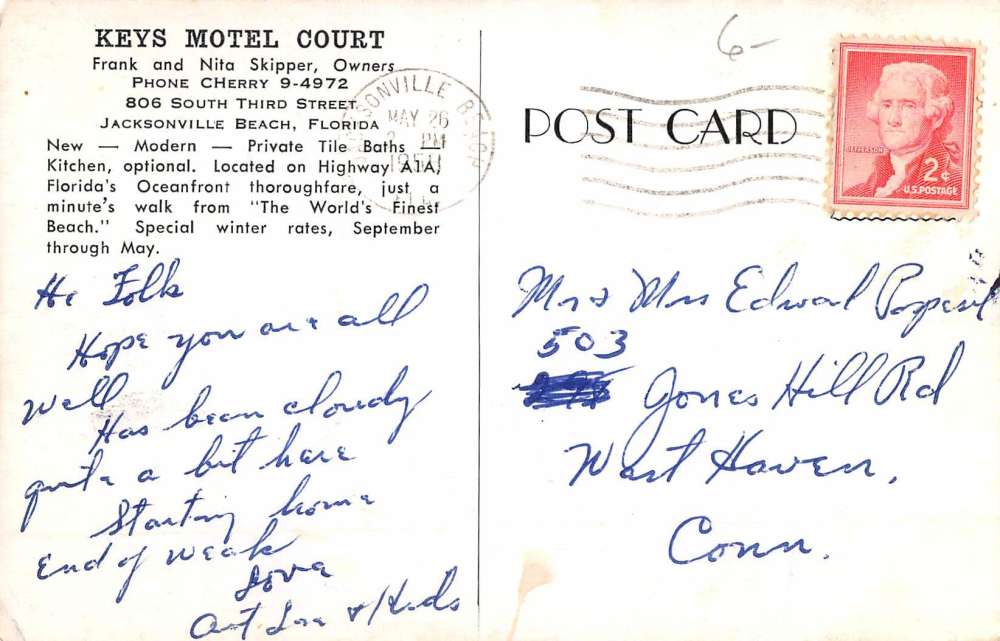 KEYS MOTEL COURT
Frank and Nita Skipper, Owners
PHONE CHERRY 9-4972
806 SOUTH THIRD STREET
JACKSONVILLE BEACH, FLORIDA
New — Modern — Private Tile Baths —
Kitchen, optional. Located on Highway A1A,
Florida's Oceanfront thoroughfare, just a
minute's walk from "The World's Finest
Beach." Special winter rates, September
through May.
Hi Folk
Hope you are all
well
Has been cloudy
quite a bit here
Starting home
End of weak
Love
Aunt &
JACKSONVILLE BEACH
MAY 26
PM
FLA
6-
POST CARD
JEFFERSON
2¢
U.S. POSTAGE
Mr & Mrs Edward
503
Jones Hill Rd
West Haven,
Conn.